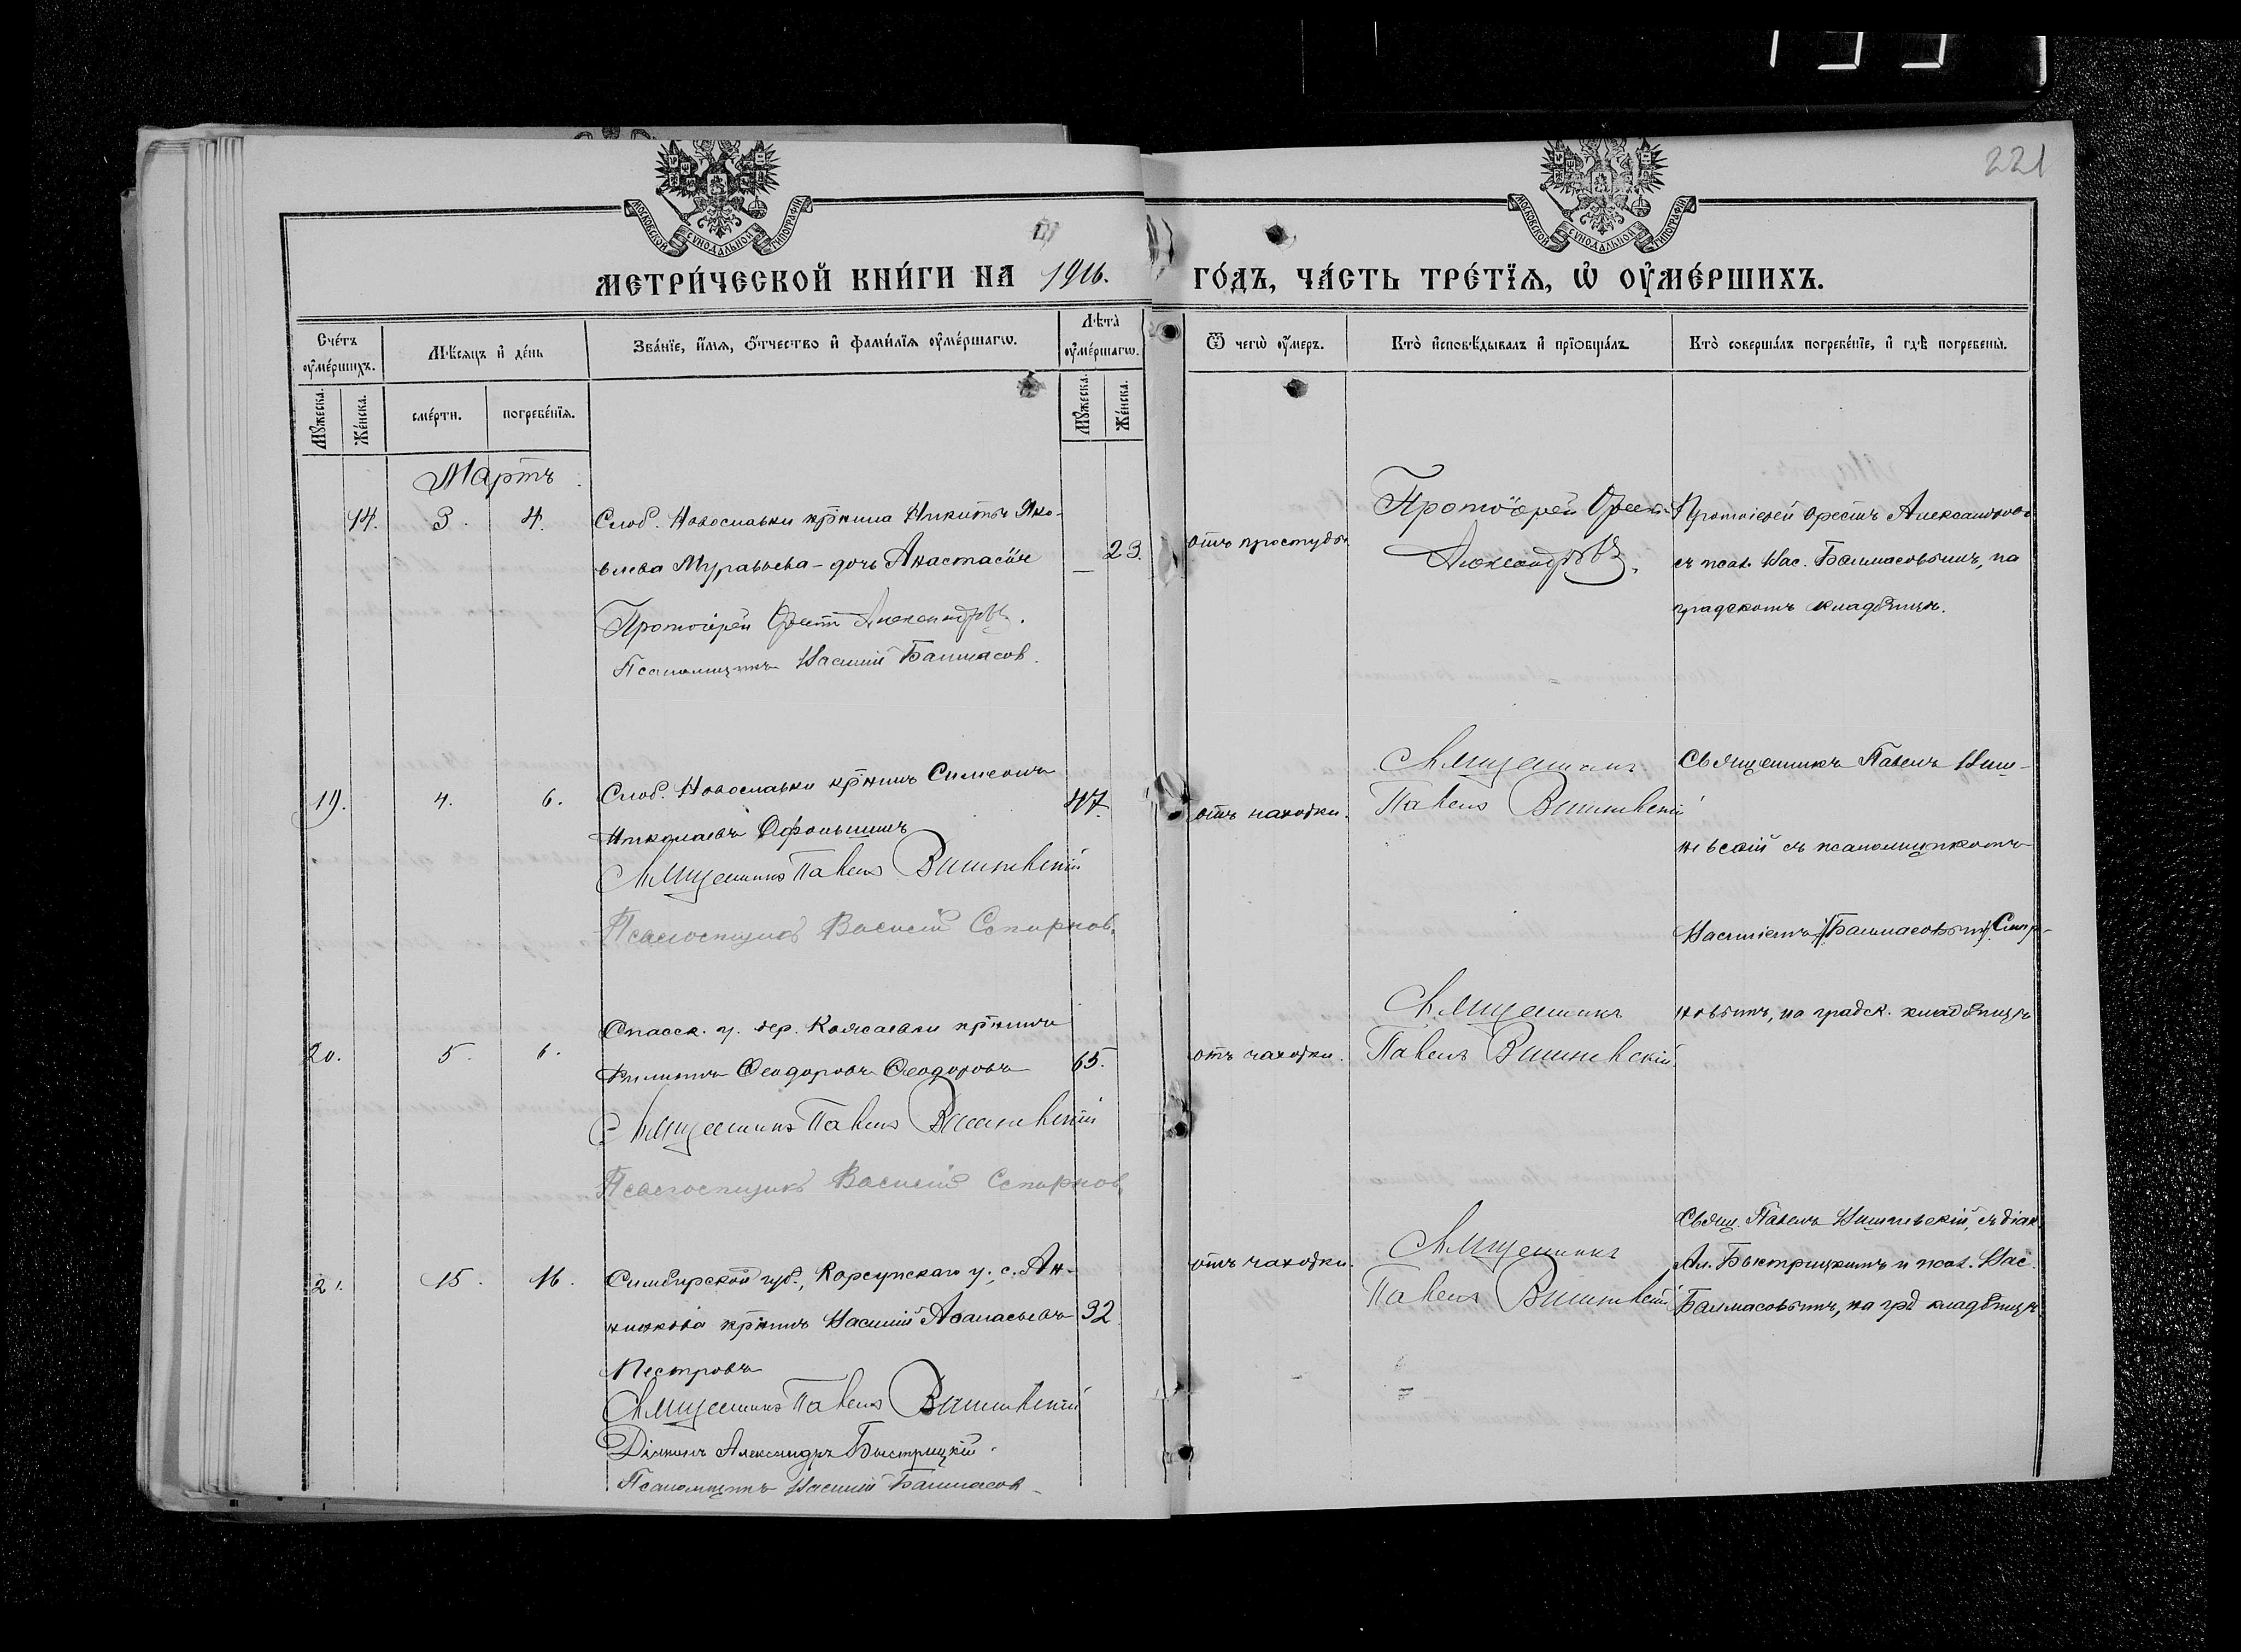 221
МОСКОВСКОЙ СУНОДАЛЬНОЙ ТИПОГРАФІИ
МОСКОВСКОЙ СУНОДАЛЬНОЙ ТИПОГРАФІИ
МЕТРИ́ЧЕСКОЙ КНИ́ГИ НА 1916.
ГО́ДЪ, ЧА́СТЬ ТРЕ́ТЇѦ, Ѡ҆ ОУ҆МЕ́РШИХЪ.
Сче́тъ оу҆ме́ршихъ.
Мѣ́сяцъ и҆ де́нь
Зва́нїе, и҆́мя, ѻ҆́тчество и҆ фами́лїя оу҆ме́ршагѡ.
Лѣта̀ оу҆ме́ршагѡ.
Ѿ чегѡ̀ оу҆́меръ.
Кто̀ и҆сповѣ́дывалъ и҆ прїѡбща́лъ
Кто̀ соверша́лъ погребе́нїе, и҆ гдѣ̀ погребены̀.
Мꙋ́жеска.
Же́нска.
сме́рти.
погребе́нїя.
Мꙋ́жеска.
Же́нска.
Мартъ
14. 3. 4. Слоб. Новославки кр̃нина Никиты Яко-
влева Муравьева - дочь Анастасія 23.
Протоіерей Орестъ Александровъ.
Псаломщикъ Василій Балмасов.
отъ простуды
Протоіерей Орестъ
Александровъ.
Протоіерей Орестъ Александровъ
съ псал. Вас. Балмасовымъ, на
градскомъ кладбищѣ.
19. 4. 6. Слоб. Новославки кр̃нинъ Симеонъ
Николаевъ Афонышинъ 47.
Священникъ Павелъ Вишневскій
Псаломщикъ Василій Смирнов.
отъ чахотки.
Священникъ
Павелъ Вишневскій
Священникъ Павелъ Виш-
невскій съ псаломщикомъ
Василіемъ (Балмасовымъ) Смир-
новымъ, на градск. кладбищѣ
20. 5. 6. Спасск. у. дер. кр̃нинъ
Филиппъ Ѳеодоровъ Ѳеодоровъ 65.
Священникъ Павелъ Вишневскій
Псаломщикъ Василій Смирнов,
отъ чахотки.
Священникъ
Павелъ Вишневскій.
21. 15. 16. Симбирской губ., Корсунскаго у., с. Ан-
ненкова кр̃нинъ Василій Аѳанасьевъ 32
Пестровъ
Священникъ Павелъ Вишневскій
Діаконъ Александръ Быстрицкій.
Псаломщикъ Василій Балмасов
отъ чахотки.
Священникъ
Павелъ Вишневскій
Свящ. Павелъ Вишневскій, съ діак.
Ал. Быстрицкимъ и псал. Вас.
Балмасовымъ, на грд кладбищѣ.